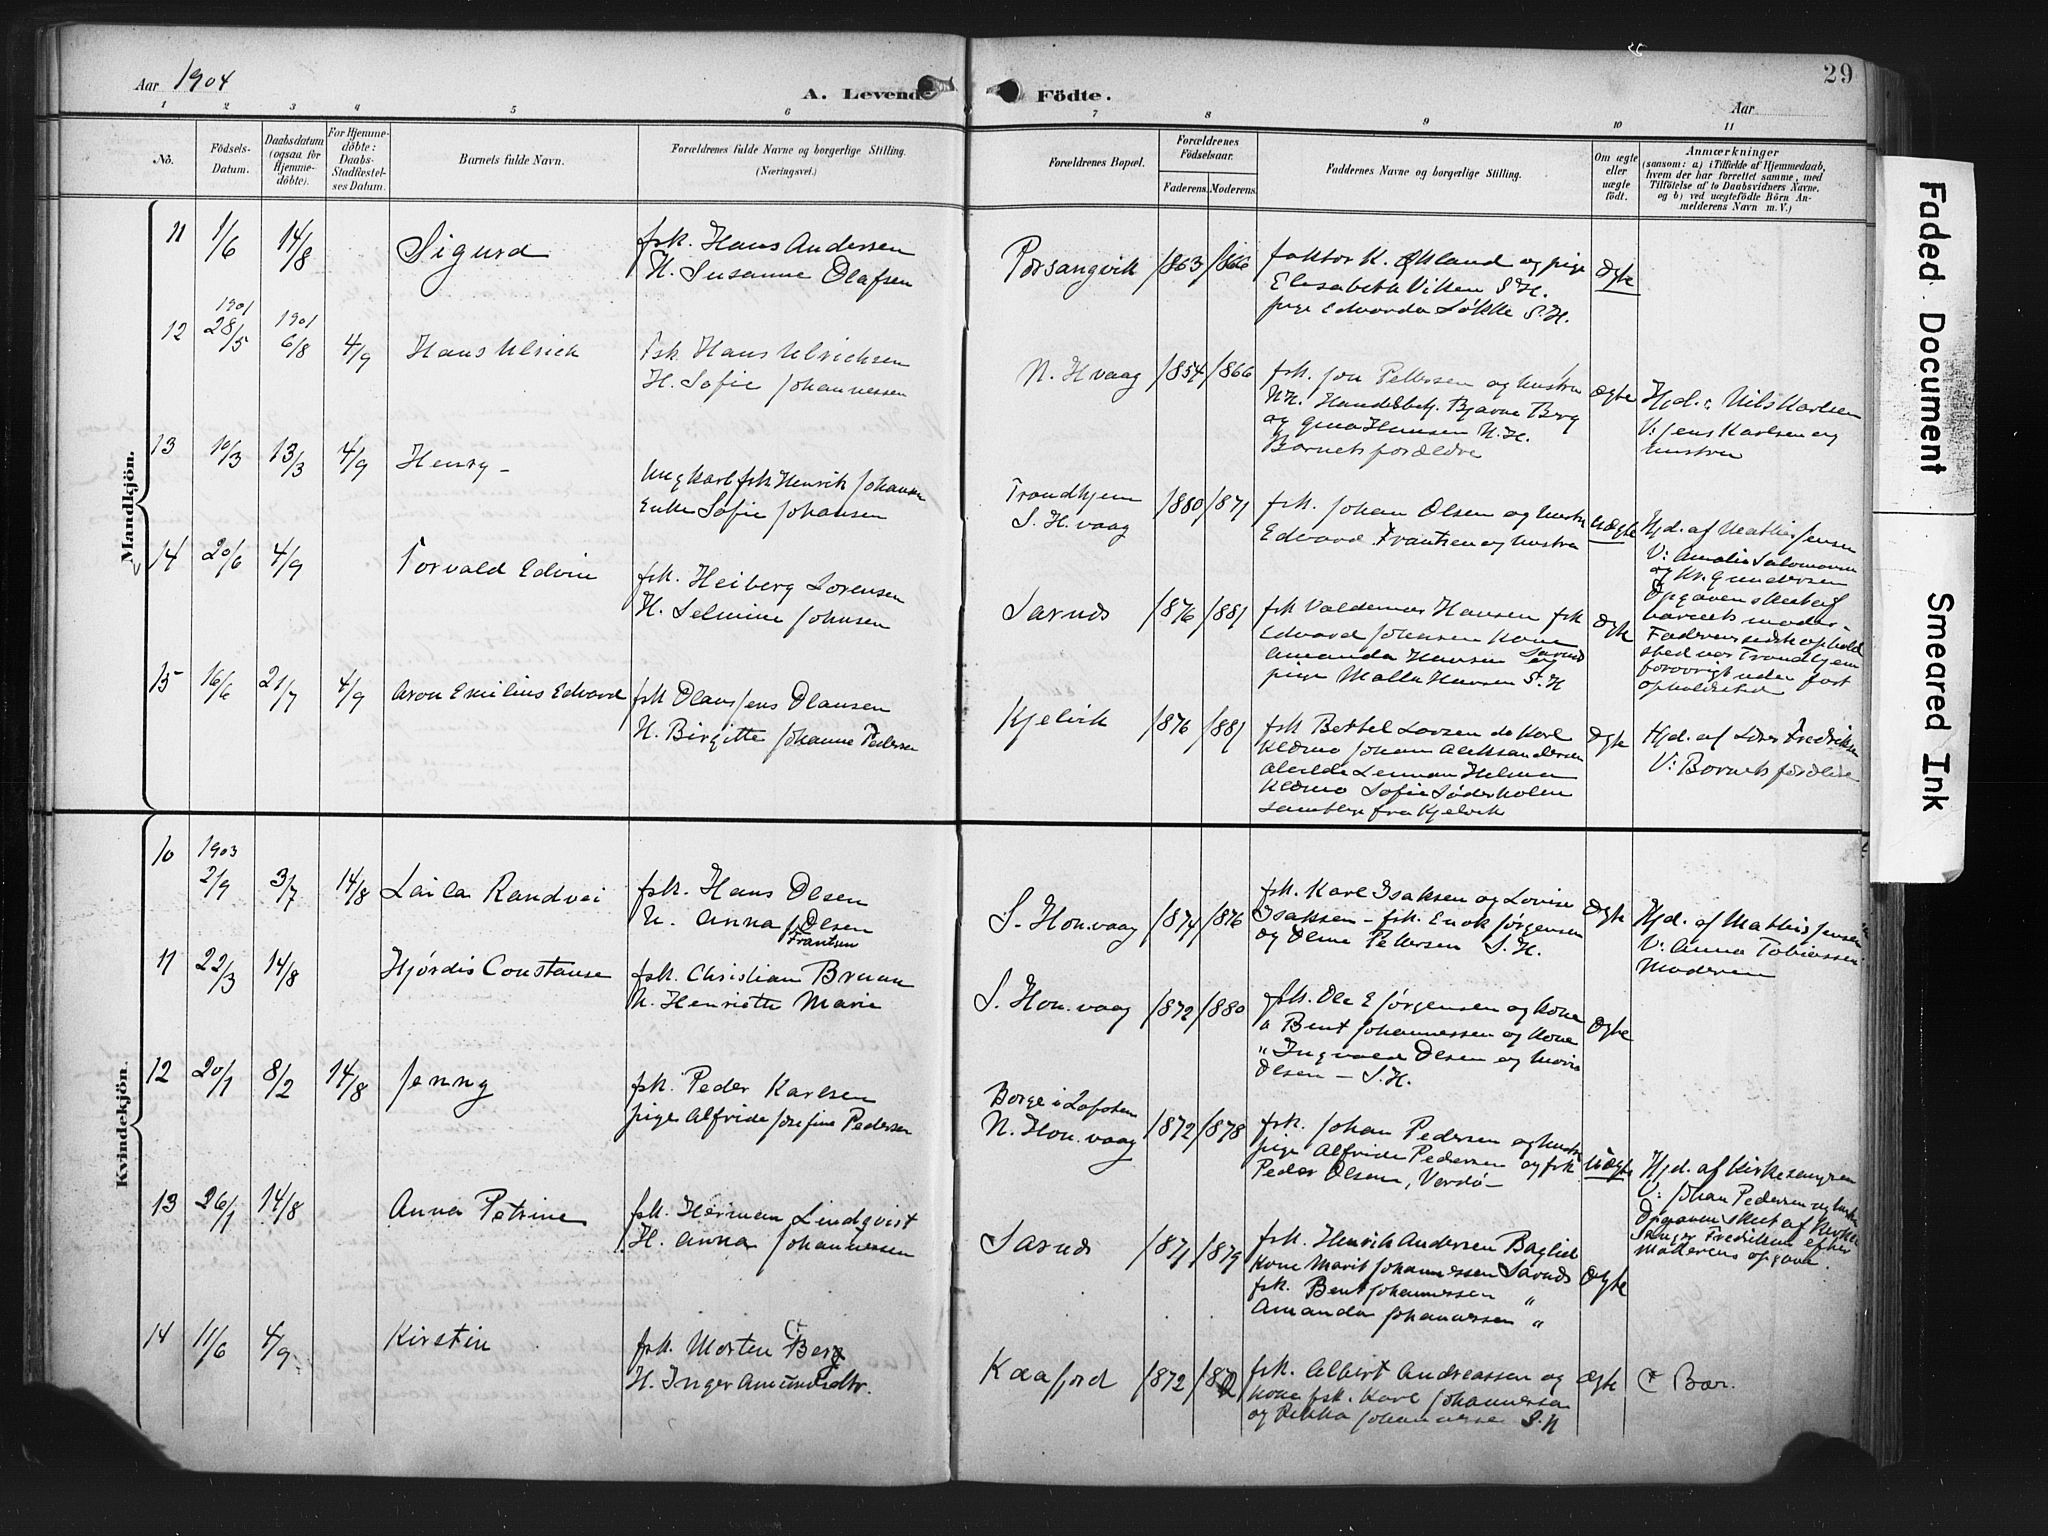 29
Aar 1904
A. Levende Födte.
Aar
1 2 3 4 5 6 7 8 9 10 11
No.
Födsels-Datum.
Daabsdatum (ogsaa for Hjemmedöbte).
For Hjemmedöbte: Daabs-Stadfæstelses Datum.
Barnets fulde Navn.
Forældrenes fulde Navne og borgerlige Stilling. (Næringsvei.)
Forældrenes Bopæl.
Forældrenes Födselsaar.
Faderens. Moderens.
Faddernes Navne og borgerlige Stilling.
Om ægte eller uægte födt.
Anmærkninger
(saasom: a) i Tilfælde af Hjemmedaab, hvem der har forrettet samme, med Tilföielse af to Daabsvidners Navne, og b) ved uægtefödte Börn Anmelderens Navn m. V.)
Mandkjön.
11 1/6 14/8 Sigurd
fsk. Hans Andersen
H. Susanne Olafsen
Porsangvik 1863 1866
faktor K. Økland og pige
Elisabeth Viken S.H.
pige Edvarda Løkke S.H.
Ægte
12 1901 28/5 1901 6/8 4/9 Hans Ulrich
fsk. Hans Ulrichsen
H. Sofie Johannessen
N. Hvaag 1854 1866
fsk. Jon Pettersen og hustru
N.H. Handelsbetj. Bjarne Berg
og Gina Hansen N.H.
Barnets forældre
Ægte
Hjd.: Nils Karlsen
V: Jens Karlsen og
hustru
13 10/3 13/3 4/9 Henry -
Ungkarl fsk Henrik Johansen
Enke Sofie Johansen
Trondhjem
S. H. vaag 1880 1871
fsk. Johan Olsen og hustru
Edvard Frantsen og hustru
Uægte
Hjd. af Mathis Jensen
V: Amalie Salomonsen
og Kr. Gundersen
Opgaven skeet af
barnets moder -
Faderens sidste ophold
sted var Trondhjem
forøvrigt uden fast
opholdssted
14 20/6 4/9 Torvald Edvin
fsk. Heiberg Lorensen
H. Selmine Johnsen
Sarnes 1876 1881
fsk Valdemar Hansen fsk
Edvard Johansen Kone
Amanda Hansen Sarnes og
pige Malla Hansen S.H
Ægte
15 16/6 21/7 4/9 Aron Emilius Edvard
fsk Olaus Jens Olausen
H. Birgitte Johanne Pedersen
Kjelvik 1876 1881
fsk Bertel Larsen
Johan Aleksandersen
Sofie Söderholm
samtlige fra Kjelvik
Ægte
Hjd. af Lars Fredriksen
V: Barnets forældre
Kvindekjön.
10 1903 2/9 3/7 14/8 Laila Randvei
fsk. Hans Olsen
H. Anna J Olsen
Frantsen
S. Hon.vaag 1874 1876
fsk. Karl Isaksen og Lovise
Isaksen - fsk. Enok Jørgensen
og Oline Pettersen S.H.
Ægte
Hjd. af Mathis Jensen
V: Anna Tobiassen
Moderen
11 22/3 14/8 Hjørdis Constanse
fsk. Christian Bruun
H. Henriette Marie
S. Hon.vaag 1872 1880
fsk. Ole E Jørgensen og kone
" Bent Johannessen og kone
" Ingvald Olsen og Marie
Olsen - S.H.
Ægte
12 20/1 8/2 14/8 Jenny
fsk. Peder Karlsen
pige Alfride Josefine Pedersen
Borge i Lofoten
N. Hon.vaag 1872 1878
fsk. Johan Pedersen og hustru
pige Alfride Pedersen og fsk
Peder Olsen, Vardø -
Uægte
Hjd. af Kirkesangeren
V: Johan Pedersen og hustru
Opgaven skeet af Kirke
sanger Fredriksen efter
Moderens opgave.
13 26/1 14/8 Anna Petrine
fsk. Herman Lindqvist
H. Anna Johannessen
Sarnes 1871 1879
fsk. Henrik Andersen
kone Marit Johannessen Sarnes
fsk. Bent Johannessen "
Amanda Johannessen "
Ægte
14 11/6 4/9 Kirstin
fsk. Morten Berg
H. Inger Amundsdtr.
Kaafjord 1872
fsk. Albert Andreassen og
kone fsk. Karl Johannessen
og Rikka Johannessen S.H
Ægte
Faded Document
Smeared Ink